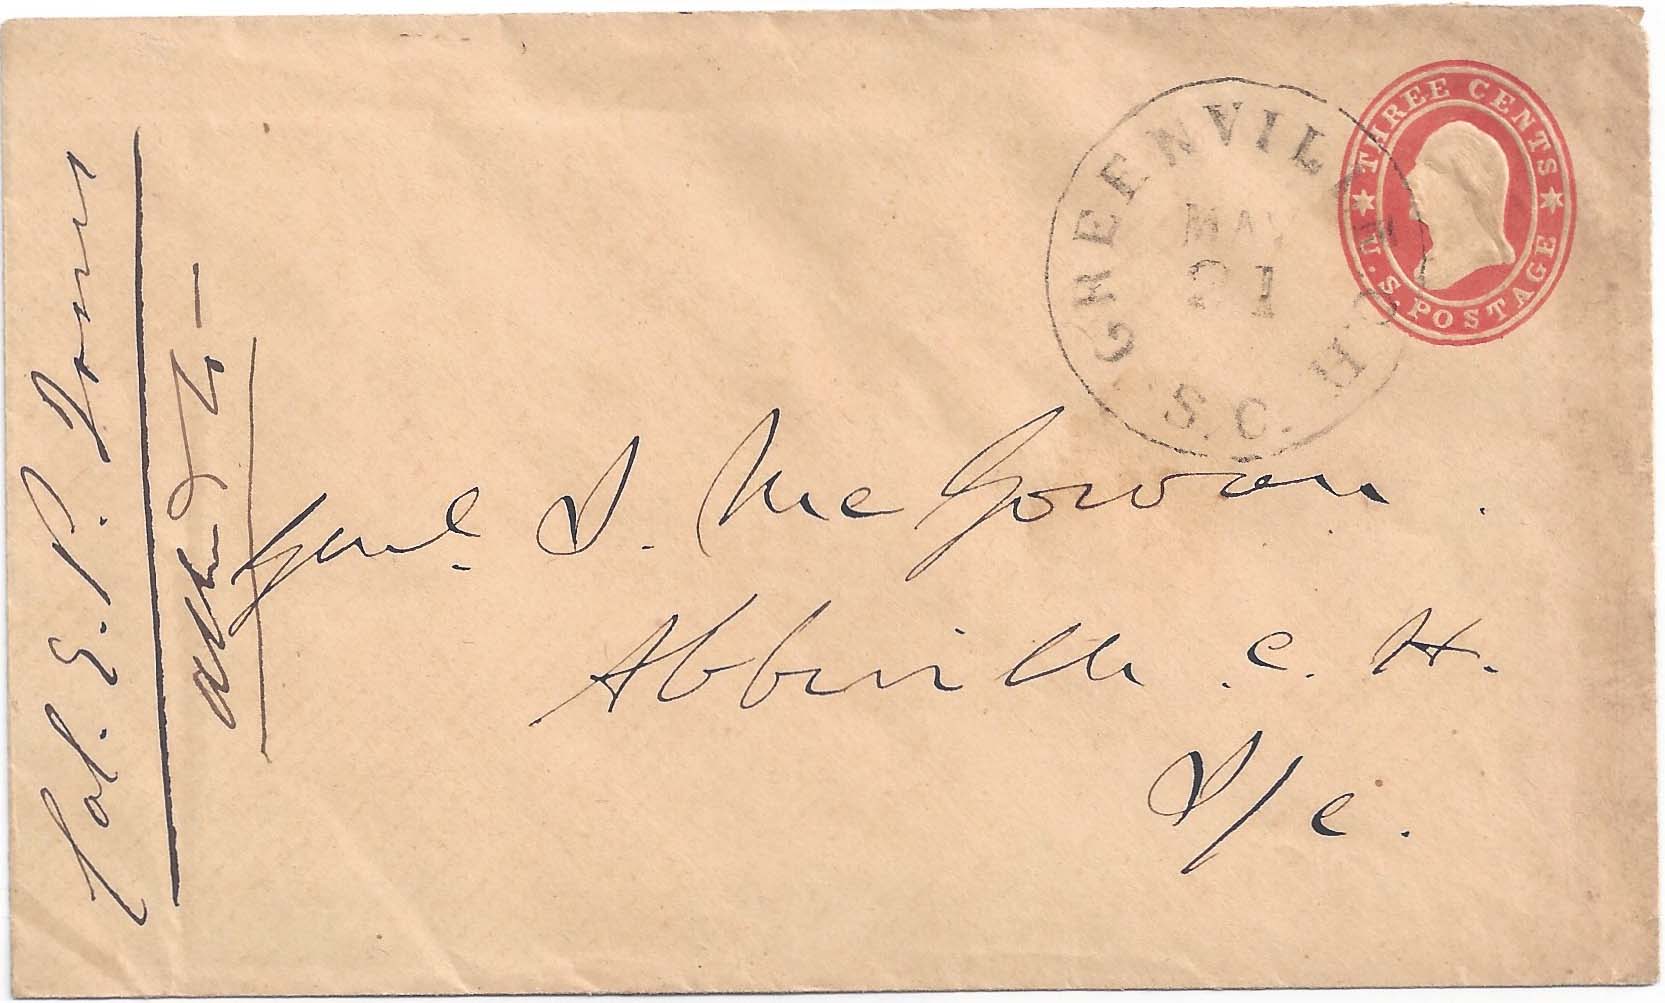 THREE CENTS
U.S. POSTAGE
GREENVILLE C.H.
S.C.
MAY
21
Genl. S. McGowan.
Abbeville. C. H.
S/C.
Col. E. P. Jones
to —